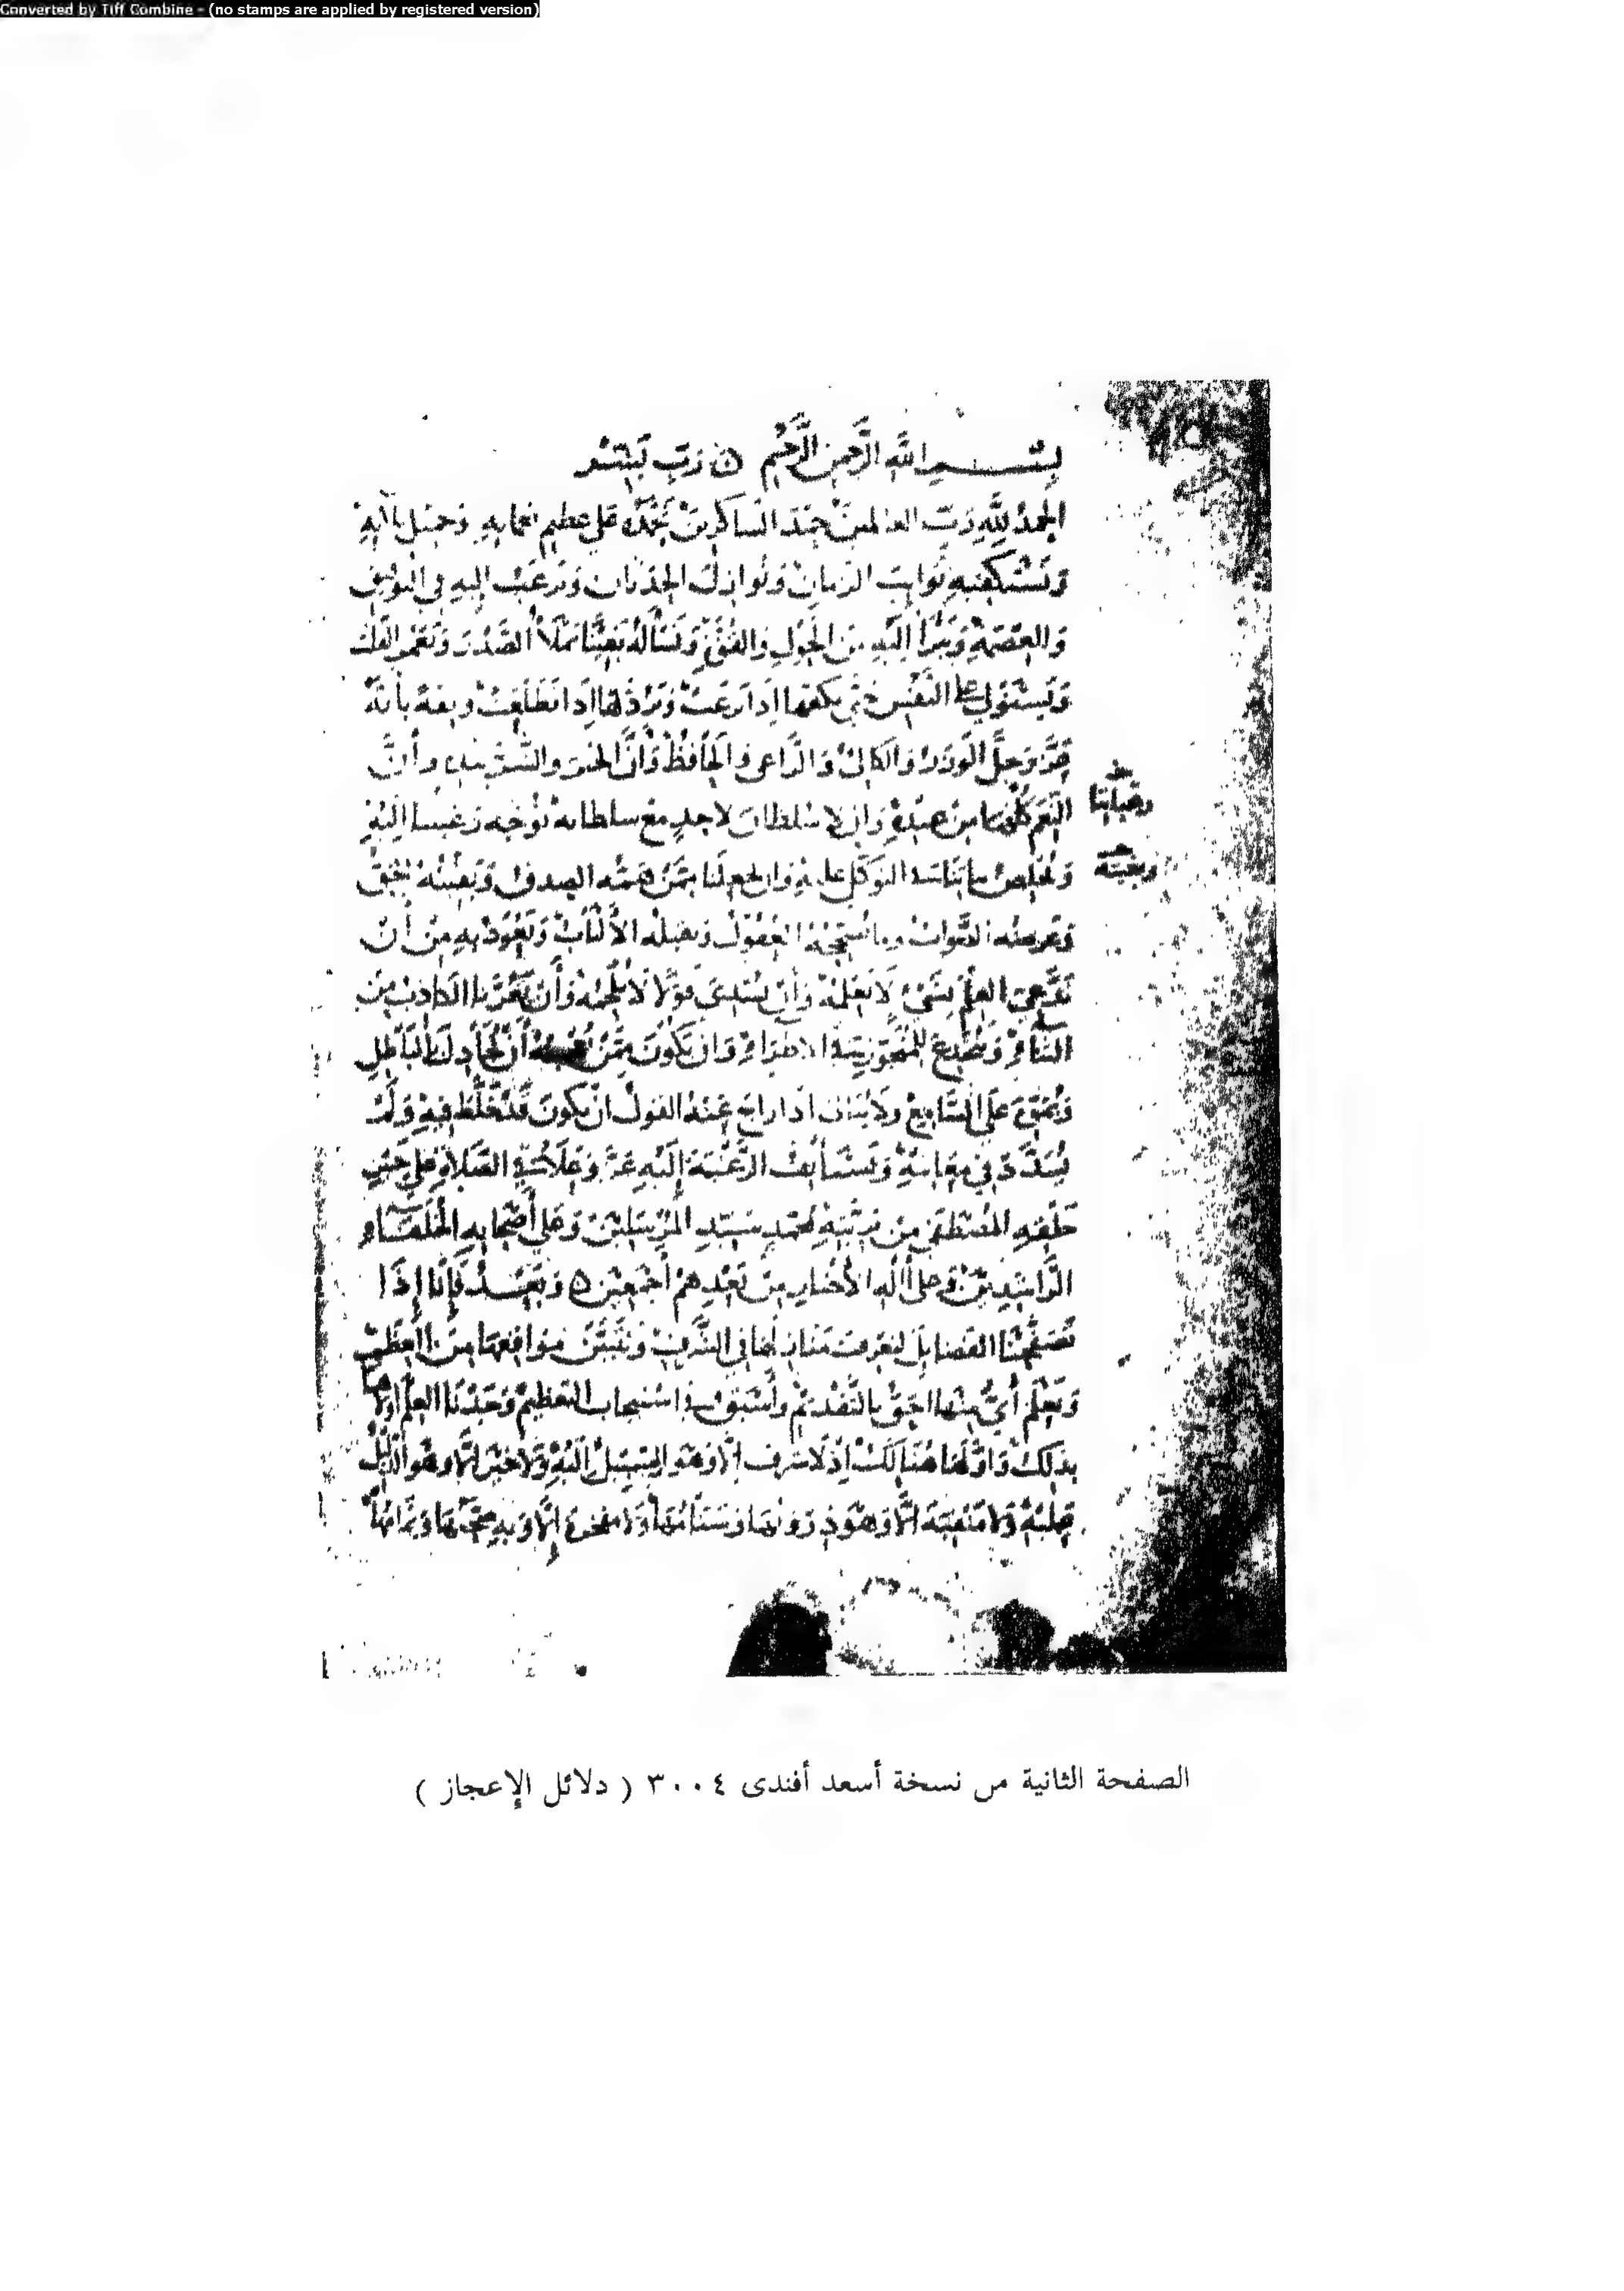 Converted by Tiff Combine - (no stamps are applied by registered version)
بسم الله الرحمن الرحيم رب يسر
الحمد لله رب العالمين حمد الشاكرين نحمده على عظيم نعمايه وجميل بلايه
ونستكفيه نوايب الزمان ونوازل الحدثان ونرغب اليه في التوفيق
والعصمة ونبرأ اليه من الحول والقوة ونسأله يقينا يملأ الصدر ويعمر القلب
ويستولي على النفس حتى يكفها اذا نزعت ويردها اذا تطلعت وثقة بأنه
عز وجل الوزر والكالئ والراعي والحافظ وأن الخير والشر بيده وأن
النعم كلها من عنده وان لا سلطان لاحد مع سلطانه نوجه رغبتنا اليه
رغباتنا
ونخلص نياتنا في التوكل عليه وان يجعلنا ممن همه الصدق وبغيته الحق
وبغيته
وغرضه الصواب وما تصححه العقول وتقبله الألباب ونعوذ به من أن
ندعي العلم بشيء لا نعلمه وأن نسدي قولا لا نلحمه وأن نكون ممن يغره الكاذب من
الثناء وينخدع للمتجوز في الاطراء وان يكون ممن يعجبه أن يجادل بالباطل
ويموه على السامع ولا يبالي اذا راج عنه القول ان يكون قد خلط فيه ولم
يسدد في معانيه ونستأنف الرغبة إليه عز وعلا في الصلاة على خير
خلقه المصطفى من بريته محمد سيد المرسلين وعلى أصحابه الخلفاء
الراشدين وعلى آله الأخيار من بعدهم أجمعين وبعد فإنا إذا
تصفحنا الفضايل لنعرف منازلها في الشرف ونتبين مواقعها من العظم
ونعلم أي منها احق بالتقديم وأسبق في استيجاب التعظيم وجدنا العلم أولاها
بذلك وأولها هنالك إذ لا شرف إلا وهو السبيل اليه ولا خير إلا وهو الدليل
عليه ولا منقبة إلا وهو ذروتها وسنامها ولا مفخرة إلا وبه صحتها وتمامها
الصفحة الثانية من نسخة أسعد أفندى ٣٠٠٤ ( دلائل الإعجاز )